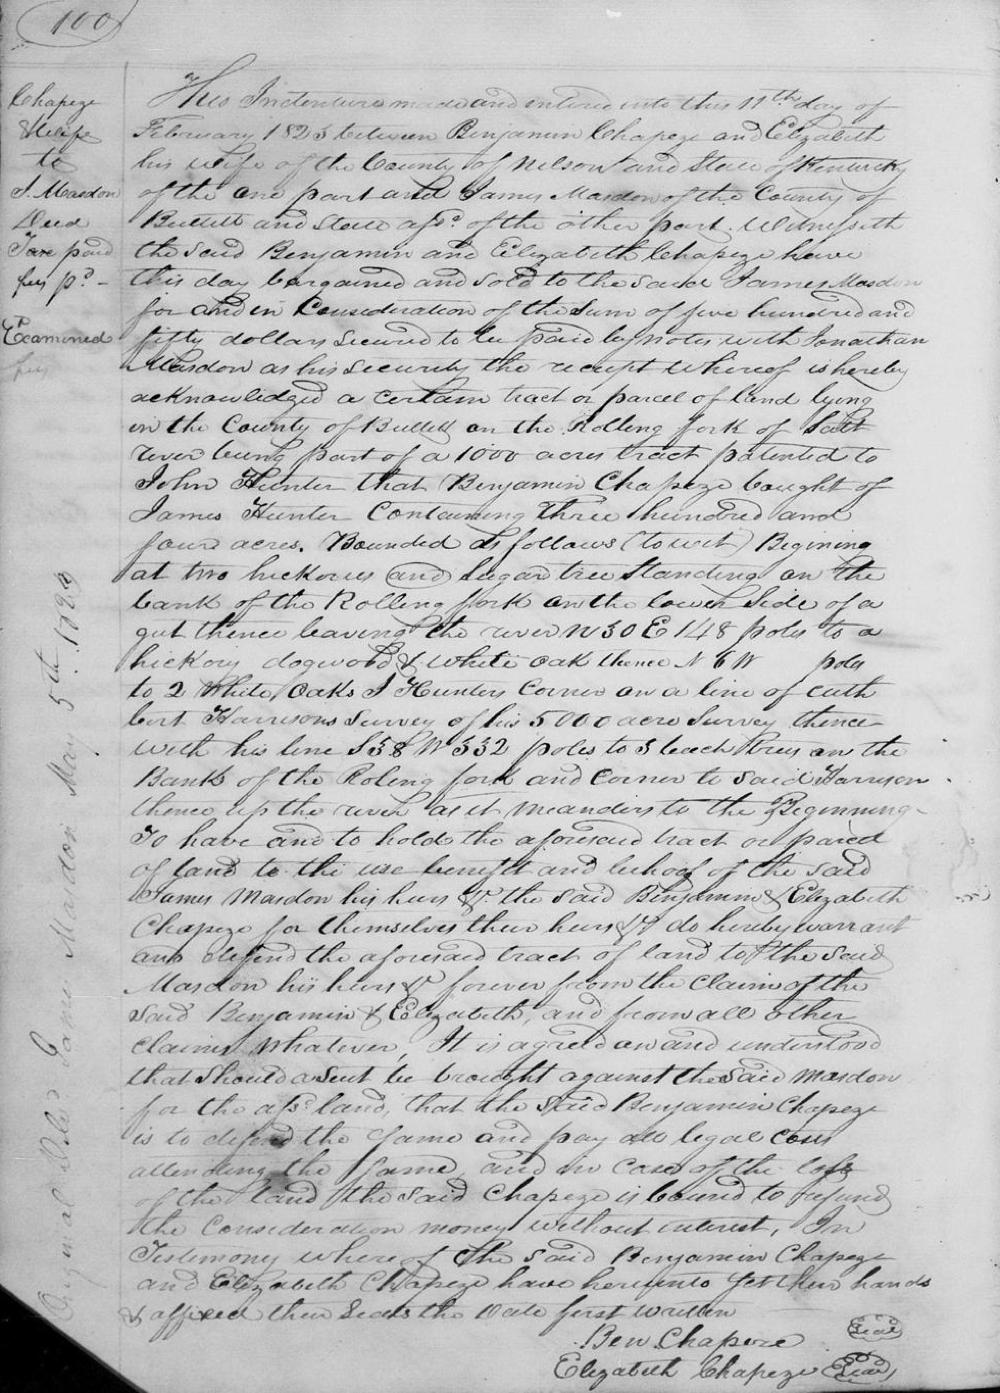 100
Chapeze
& Wife
to
J. Masdon
Deed
Taxe paid
fees pd -
Examined
This Indenture made and entered into this 11th day of
February 1825 between Benjamin Chapeze and Elizabeth
his wife of the County of Nelson and State of Kentucky
of the one part and James Masdon of the County of
Bullitt and State afsd. of the other part. Witnesseth
the said Benjamin and Elizabeth Chapeze have
this day bargained and sold to the said James Masdon
for and in Consideration of the Sum of five hundred and
fifty dollars secured to be paid by notes with Jonathan
Masdon as his security the receipt whereof is hereby
acknowledged a certain tract or parcel of land lying
in the County of Bullitt on the Rolling fork of Salt
river being part of a 1000 acres tract patented to
John Hunter that Benjamin Chapeze bought of
James Hunter Containing three hundred and
four acres. Bounded as follows (to wit) Begining
at two hickories (and) Sugar tree Standing on the
bank of the Rolling fork on the lower Side of a
gut thence leaving the river N 30 E 148 poles to a
hickory dogwood & white oak thence N 6 W poles
to 2 White Oaks J Hunters Corner on a line of Cuth
bert Harrisons Survey of his 5000 acre Survey thence
with his line S 58 W 332 poles to 3 beach trees on the
Bank of the Roling fork and Corner to said Harrison
thence up the river as it meanders to the Beginning -
To have and to hold the aforesaid tract or parcel
of land to the use benefit and behoof of the said
James Masdon his heirs &c. the said Benjamin & Elizabeth
Chapeze for themselves their heirs &c do hereby warrant
and defend the aforesaid tract of land to the said
Masdon his heirs &c forever from the Claim of the
said Benjamin & Elizabeth, and from all other
claims whatever, It is agreed on and understood
that should a Suit be brought against the said Masdon
for the afsd land, that the said Benjamin Chapeze
is to defend the Same and pay all legal Costs
attending the Same, and in Case of the loss
of the land the said Chapeze is bound to refund
the Consideration money without interest, In
Testimony where of the said Benjamin Chapeze
and Elizabeth Chapeze have hereunto Set their hands
& affixed their Seals the date first written
Ben Chapeze Seal
Elizabeth Chapeze Seal
Original Deld James Masdon May 5th